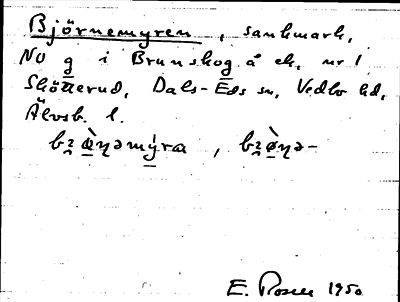 Björnemyren, sankmark,
No g i Brunskog å ek. nr 1
Skötterud, Dals-Eds sn, Vedbo hd,
Älvsb. l.
E. Rosell 1950